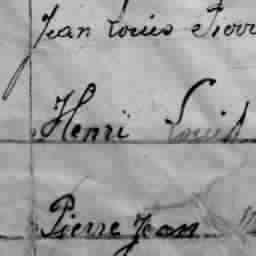 Jean Louis Pierr
Henri Louis
Pierre Jean